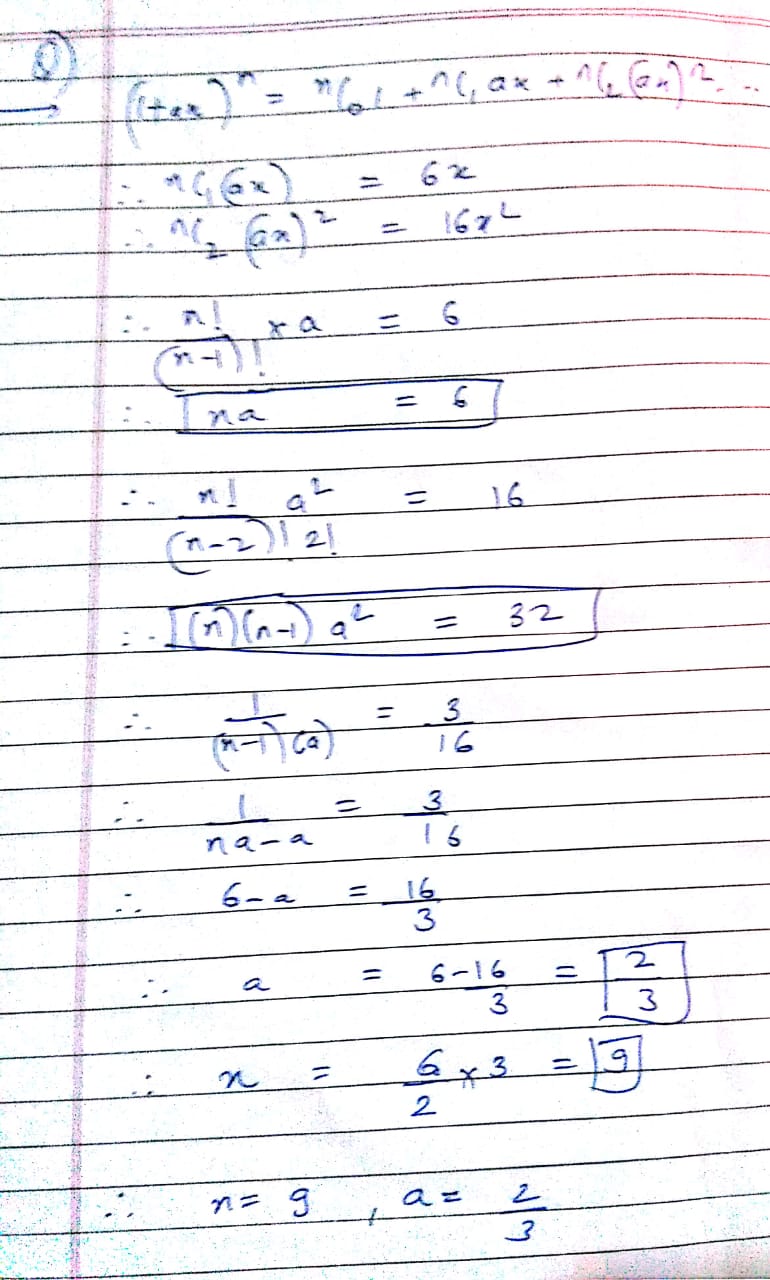 Q)
(1+ax)ⁿ = ⁿC₀ 1 + ⁿC₁ ax + ⁿC₂ (ax)² ...
∴ ⁿC₁ (ax) = 6x
∴ ⁿC₂ (ax)² = 16x²
∴ n!/(n-1)! × a = 6
∴ na = 6
∴ n!/((n-2)! 2!) a² = 16
∴ (n)(n-1) a² = 32
∴ 1/((n-1)(a)) = 3/16
∴ 1/(na-a) = 3/16
∴ 6-a = 16/3
∴ a = 6-16/3 = 2/3
∴ n = 6/2 × 3 = 9
∴ n = 9 , a = 2/3